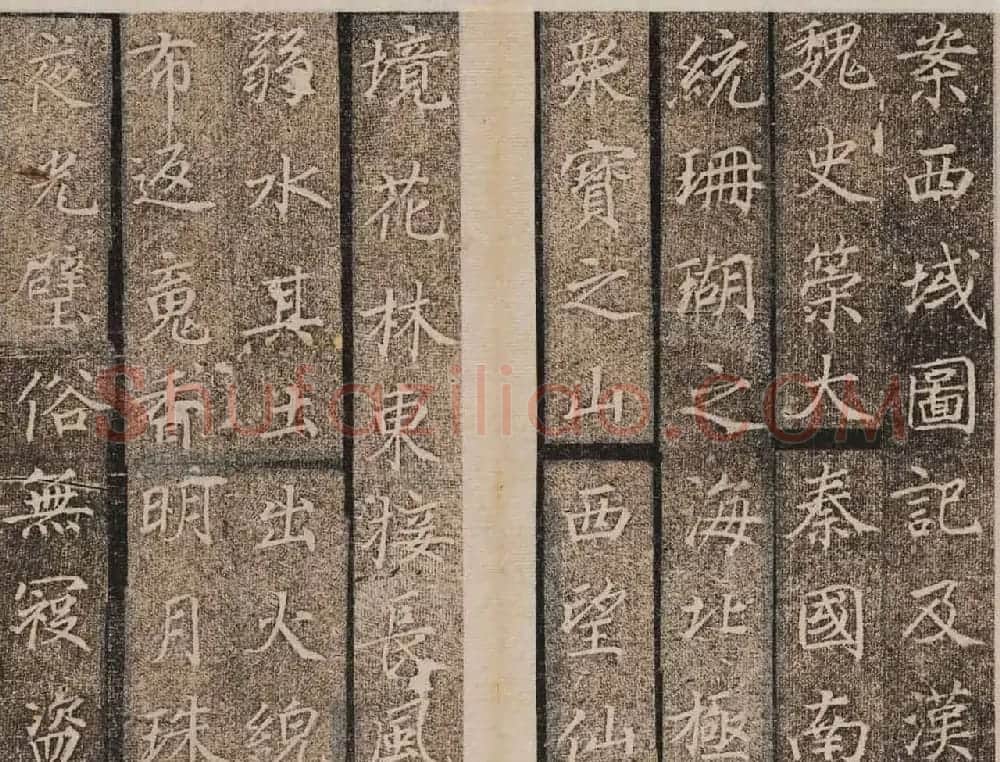 案西域圖記及漢
魏史策大秦國南
統珊瑚之海北極
衆寶之山西望仙
境花林東接長風
弱水其土出火綄
布返魂香明月珠
夜光璧俗無寇盗
Shufaziliao.COM